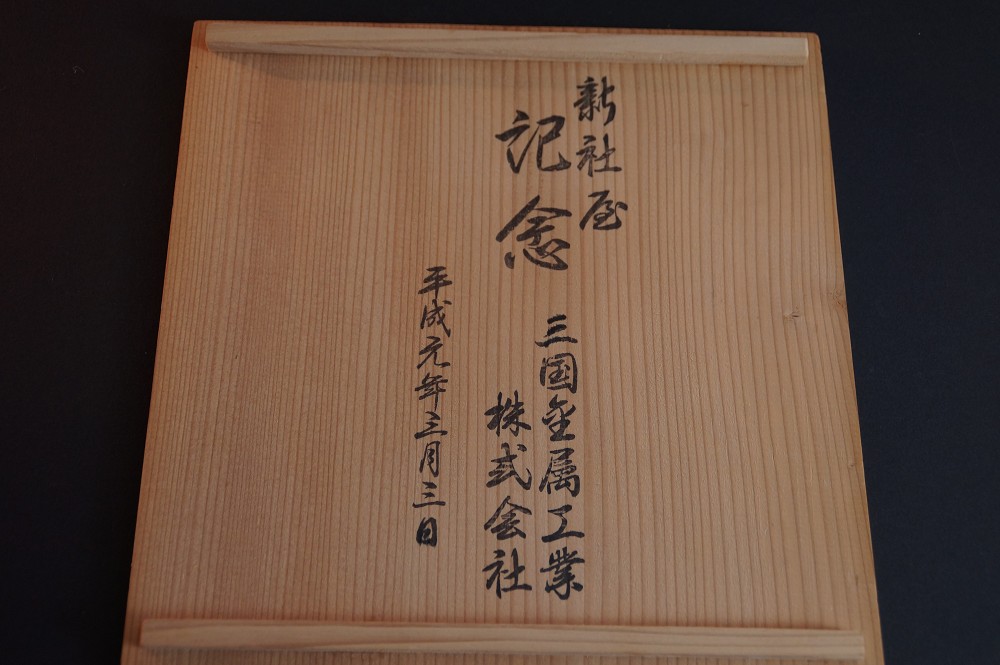 新社屋
記念
三国金属工業
株式会社
平成元年三月三日